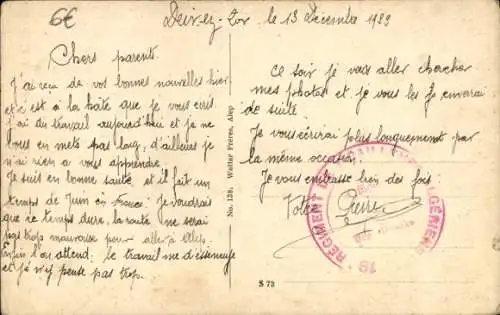 6€
Deir-ez-Zor le 13 Décembre 1933
Chers parents.
J'ai reçu de vos bonnes nouvelles hier
et c'est à la hâte que je vous écris.
J'ai du travail aujourd'hui et je ne
vous en mets pas long, d'ailleurs je
n'ai rien a vous apprendre.
Je suis en bonne santé et il fait un
temps de Juin en France. Je voudrais
que ce temps dure, la route ne serai
pas trop mauvaise pour aller à Alep.
Enfin l'on attend; le travail me désennuie
et je n'y pense pas trop.
No. 138, Wattar Frères, Alep
S 73
Ce soir je vais aller chercher
mes photos et je vous les enverai
de suite.
Je vous écrirai plus longuement par
la même occasion.
Je vous embrasse bien des fois.
Votre Pierre
19 REGIMENT DE TIRAILLEURS ALGÉRIENS